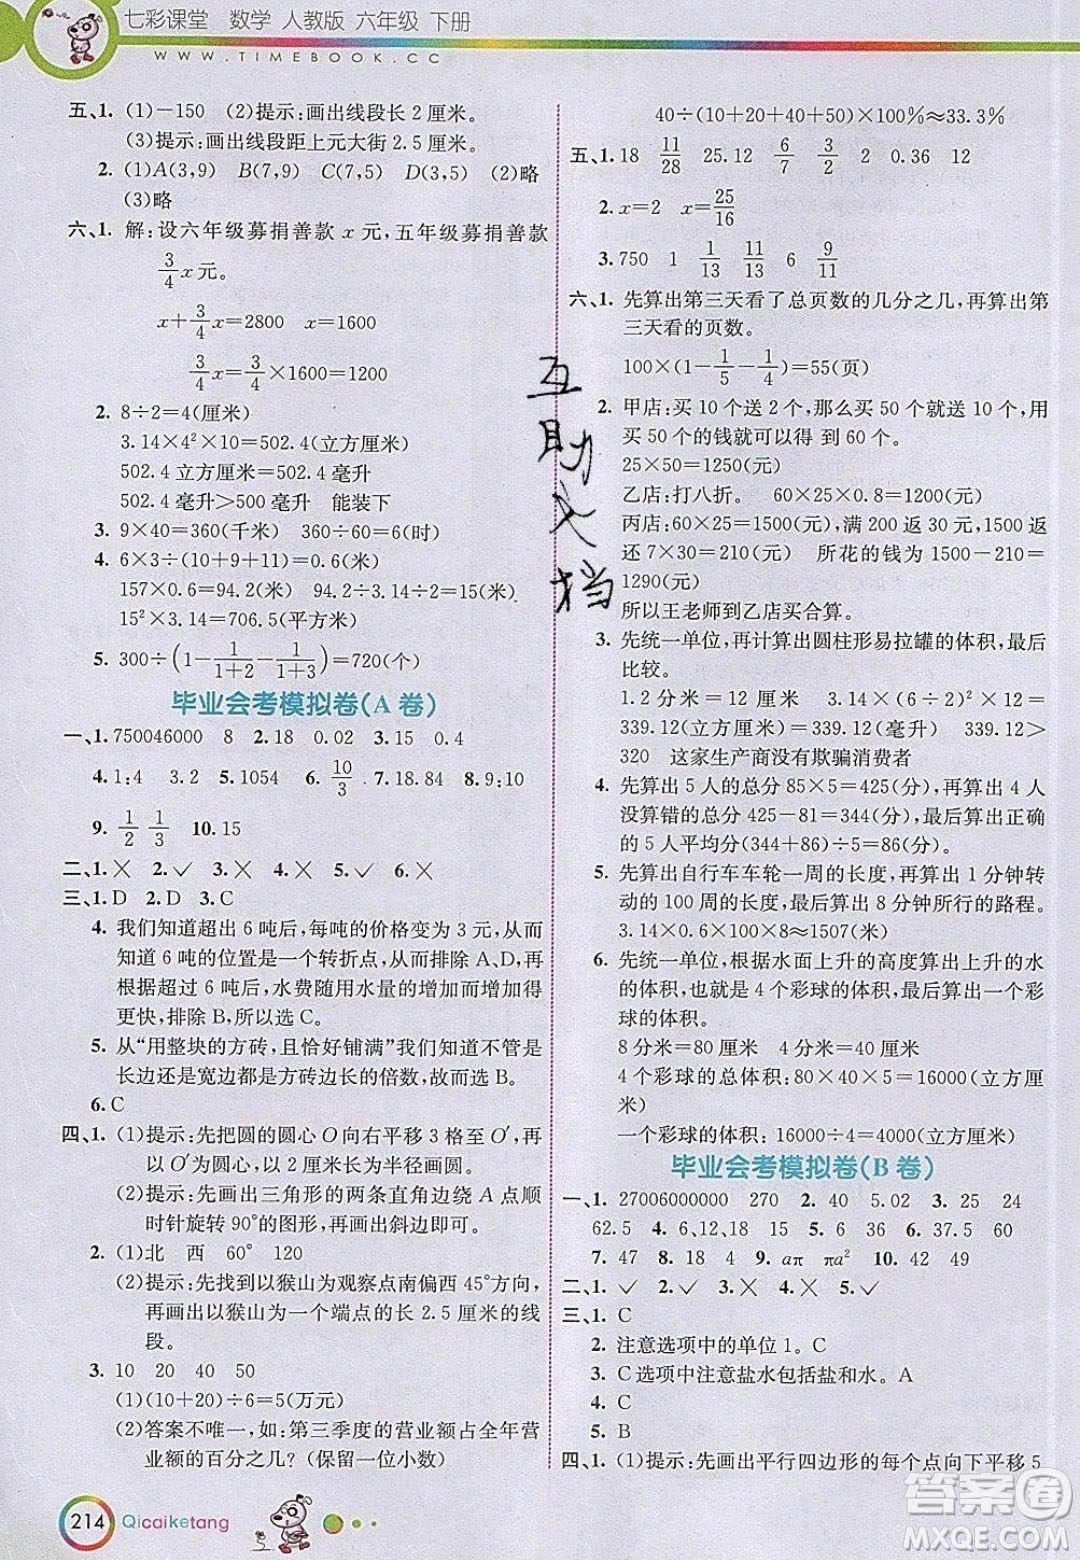 七彩课堂 数学 人教版 六年级 下册
WWW.TIMEBOOK.CC
五、1. (1)−150 (2)提示:画出线段长 2 厘米。
(3)提示:画出线段距上元大街 2.5 厘米。
2. (1)A(3,9) B(7,9) C(7,5) D(3,5) (2)略
(3)略
六、1. 解:设六年级募捐善款 x 元,五年级募捐善款
3/4 x 元。
x+3/4 x=2800 x=1600
3/4 x=3/4×1600=1200
2. 8÷2=4(厘米)
3.14×4²×10=502.4(立方厘米)
502.4 立方厘米=502.4 毫升
502.4 毫升>500 毫升 能装下
3. 9×40=360(千米) 360÷60=6(时)
4. 6×3÷(10+9+11)=0.6(米)
157×0.6=94.2(米) 94.2÷3.14÷2=15(米)
15²×3.14=706.5(平方米)
5. 300÷(1−1/(1+2)−1/(1+3))=720(个)
毕业会考模拟卷(A 卷)
一、1.750046000 8 2.18 0.02 3.15 0.4
4.1:4 3.2 5.1054 6. 10/3 7.18.84 8.120
9. 1/2 1/3 10.15
二、1.✕ 2.✓ 3.✓ 4.✕ 5.✓ 6.✕
三、1.D 2.D 3.C
4. 我们知道超出 6 吨后,每吨的价格变为 3 元,也就
知道 6 吨的位置是一个转折点,从而排除 A、D,再
有超过 6 吨后,水费随用水量的增加而增加得
更快,排除 B,所以选 C。
5. 从“用整块的方砖,且恰好铺满”我们知道不管是
长边还是宽边都是方砖边长的倍数,故选 B。
6.C
四、1. (1)提示:先把圆的圆心 O 向右平移 3 格至 O′,再
以 O′为圆心,以原来圆的半径为半径画圆。
(2)提示:画出三角形的两条直角边绕 A 点顺
时针旋转 90°的图形,再画出斜边即可。
2. (1)北 西 60° 120
(2)提示:先找到以猴山为观察点南偏西 45°方向,
再画出以猴山为一个端点的长 2.5 厘米的线
段。
3. 10 20 40 50
(1)(10+20)÷6=5(万元)
(2)答案不唯一,如:第三季度的营业额占全年营
业额的百分之几?(保留一位小数)
40÷(10+20+40+50)×100%≈33.3%
五、1. 18 11/28 25.12 6/7 3/2 2 0.36 12
2. x=2 x=25/16
3. 750 1 1/13 11/13 6 9/11
六、1. 先算出第三天看了总页数的几分之几,再算出第
三天看的页数。
100×(1−1/5−1/4)=55(页)
2. 甲店:买 10 个送 2 个,那么买 50 个就送 10 个,用
买 50 个的钱就可以得 到 60 个。
25×50=1250(元)
乙店:打八折。 60×25×0.8=1200(元)
丙店:60×25=1500(元),满 200 返 30 元,1500 里
还 7×30=210(元) 所花的钱为 1500−210=
1290(元)
所以王老师到乙店买合算。
3. 先统一单位,再计算出圆柱形易拉罐的体积,最后
比较。
1.2 分米=12 厘米 3.14×(6÷2)²×12=
339.12(立方厘米)=339.12(毫升) 339.12>
320 这家生产商没有欺骗消费者
4. 先算出 5 人的总分 85×5=425(分),再算出 4 人
没算错的总分 425−81=344(分),最后算出正确
的 5 人平均分(344+86)÷5=86(分)。
5. 先算出自行车车轮一周的长度,再算出 1 分钟转
的 100 周的长度,最后算出 8 分钟所行的路程。
3.14×0.6×100×8≈1507(米)
6. 先统一单位,再根据水面上升的高度算出上升的水
的体积,也就是 4 个彩球的体积,最后算出一个彩
球的体积。
8 分米=80 厘米 4 分米=40 厘米
4 个彩球的总体积:80×40×5=16000(立方厘
米)
一个彩球的体积:16000÷4=4000(立方厘米)
毕业会考模拟卷(B 卷)
一、1. 27006000000 270 2. 40 5.02 3. 25 24
62.5 4. 6,12,18 15 5. 6 36 6. 37.5 60
7. 47 8. 18 4 9. aπ πa² 10. 42 49
二、1. ✓ 2. ✕ 3. ✕ 4. ✕ 5. ✓
三、1. C
2. 注意选项中的单位 1。C
3. C 选项中注意盐水包括盐和水。A
4. C
5. B
四、1. (1)提示:先画出平行四边形的每个点向下平移 5
互助文档
214 Qicaiketang
答案圈
MXQE.COM